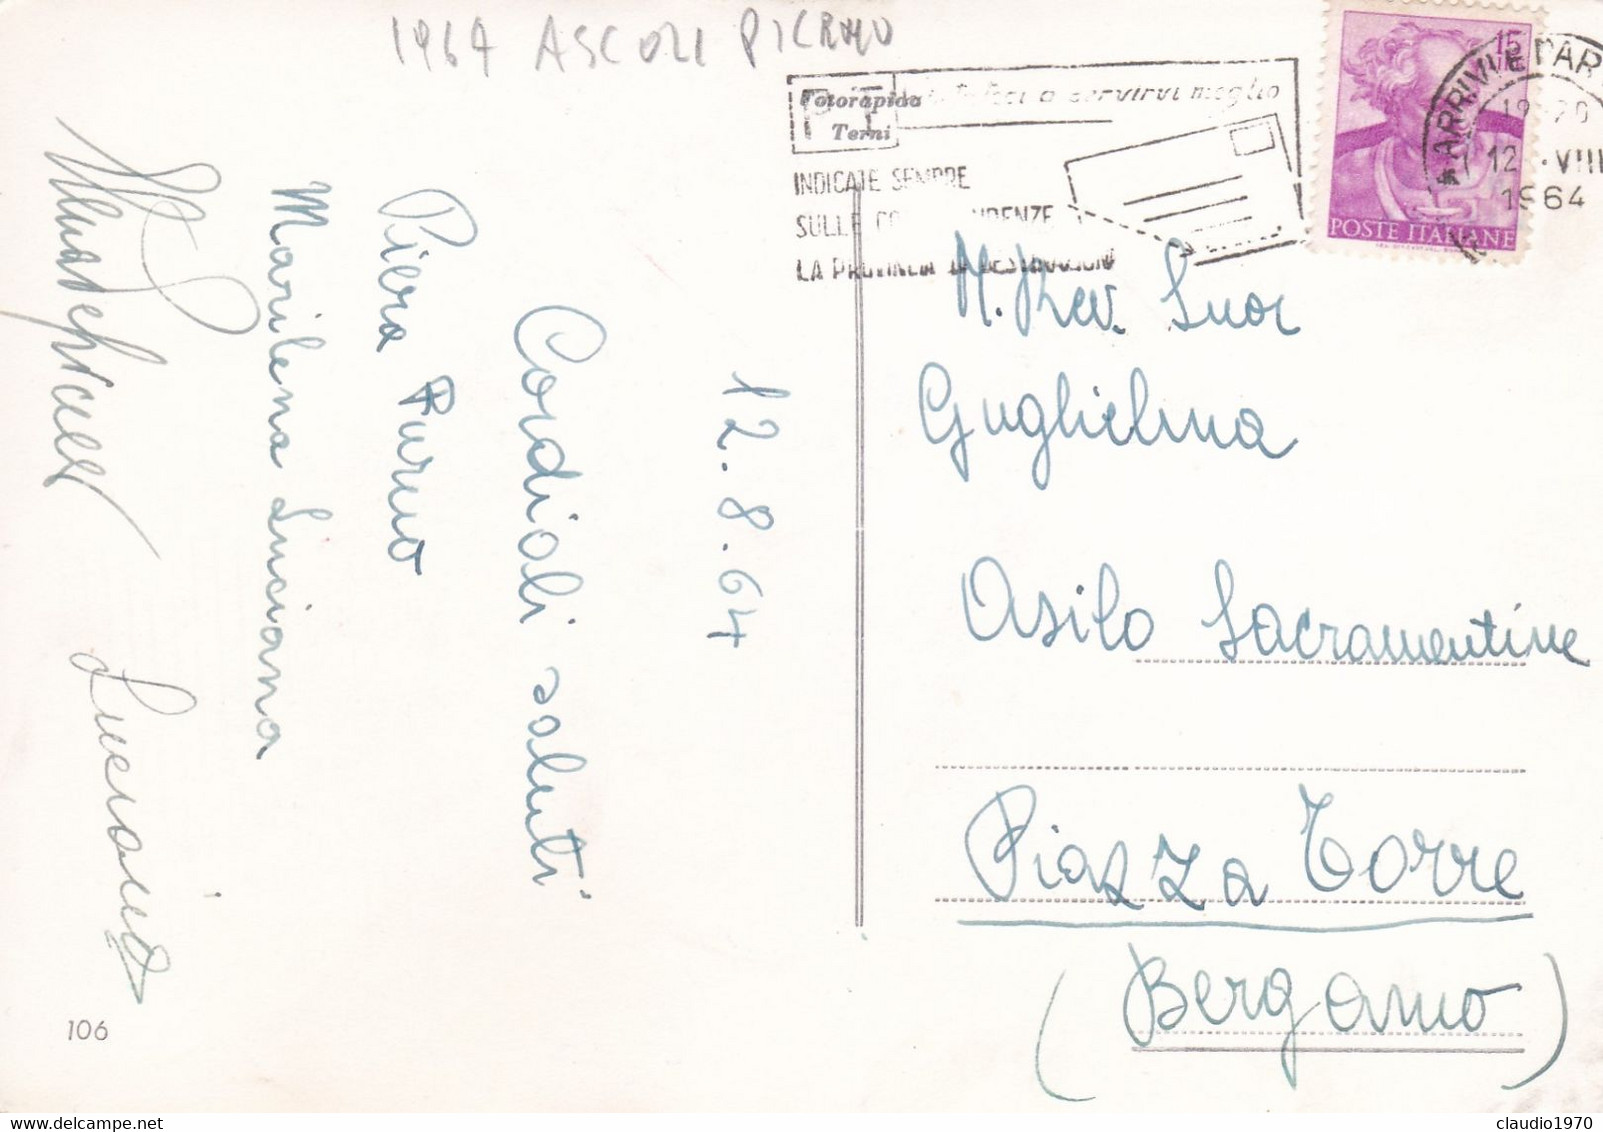 1964 ASCOLI PICENO
Fotorapida
Terni
servirvi meglio
INDICATE SEMPRE
SULLE
LA PROVINCIA DI DESTINAZIONE
15
POSTE ITALIANE
ARRIVI E PAR
12 VIII
1964
12.8.64
Cordiali saluti
Piera
Marilena Luciana
M. Rev. Suor
Guglielma
Asilo Sacramentine
Piazza Torre
(Bergamo)
106
claudio1970